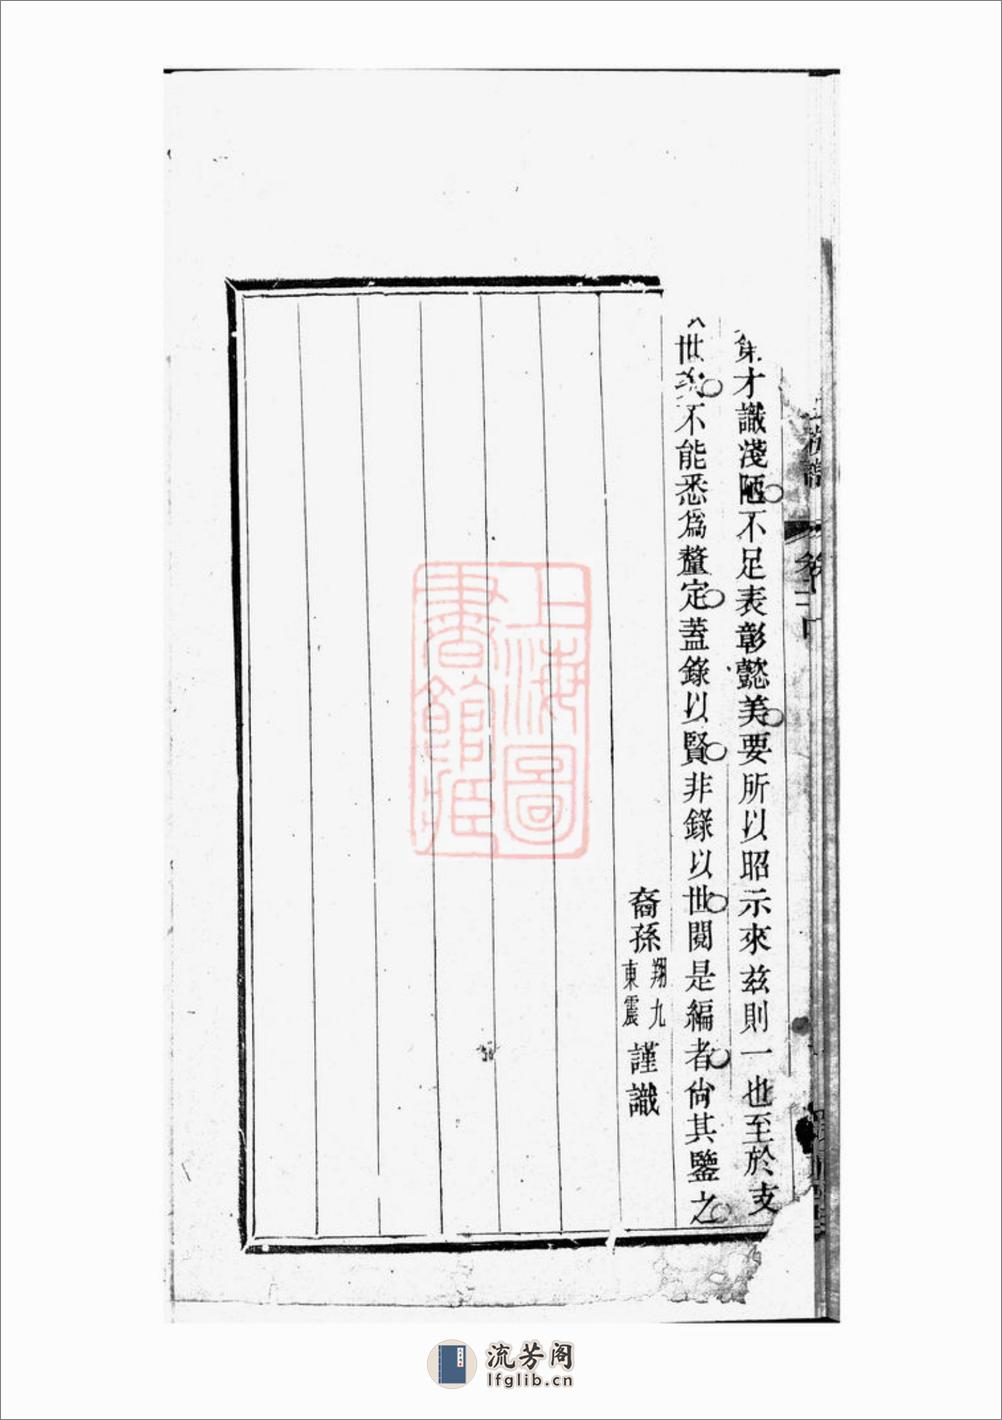 才識淺陋不足表彰懿美要所以昭示來茲則一也至於支
世次不能悉爲釐定蓋錄以賢非錄以世閱是編者尙其鑒之
裔孫翔九東震謹識
卷二十
上海圖書館藏
流芳阁
lfglib.cn